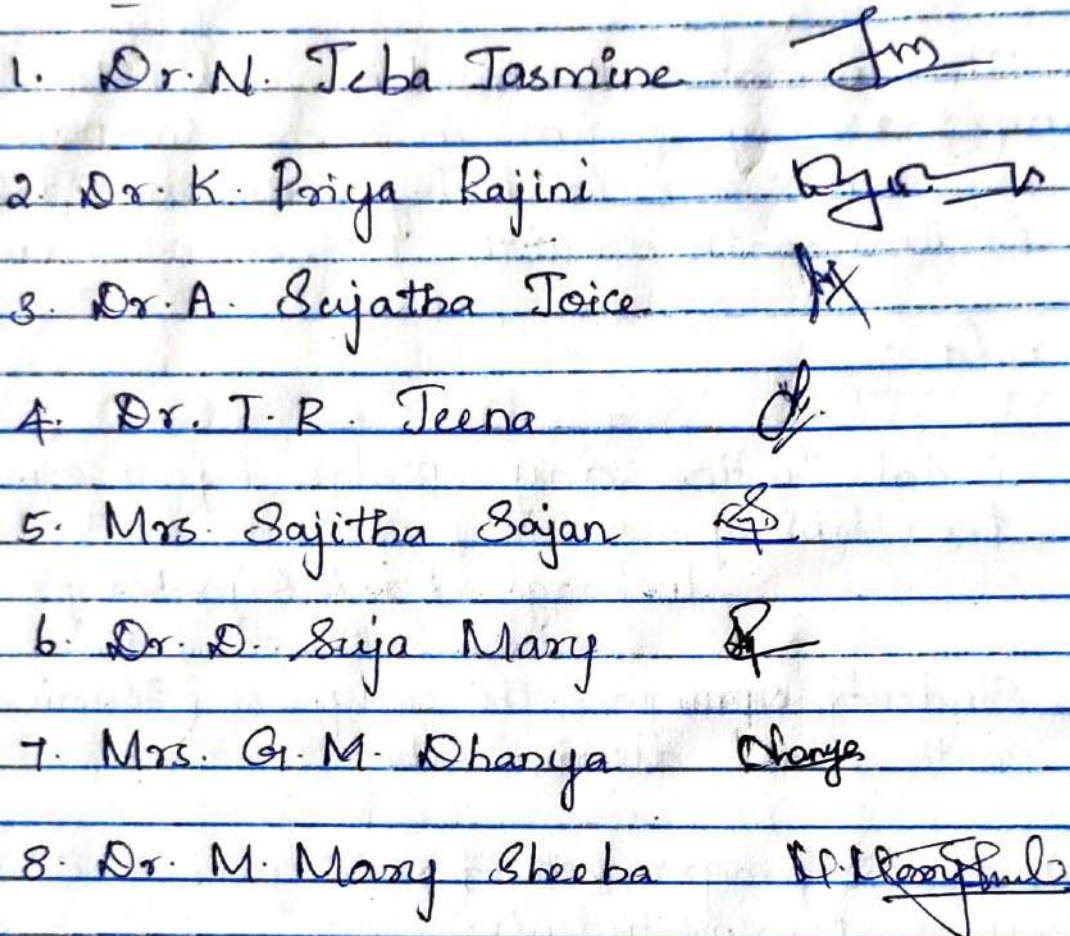 1. Dr. N. Jeba Jasmine
2. Dr. K. Priya Rajini
3. Dr. A. Sujatha Joice
4. Dr. T. R. Jeena
5. Mrs. Sajitha Sajan
6. Dr. D. Suja Mary
7. Mrs. G. M. Dhanya Dhanya
8. Dr. M. Mary Sheeba